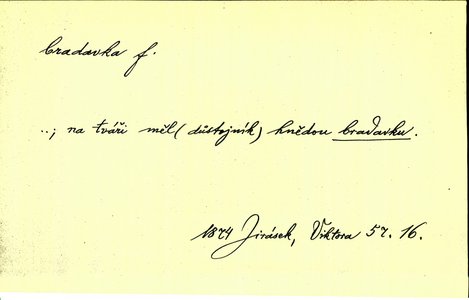 bradavka f.
..; na tváři měl (důstojník) hnědou bradavku.
1874 Jirásek, Viktora 57. 16.